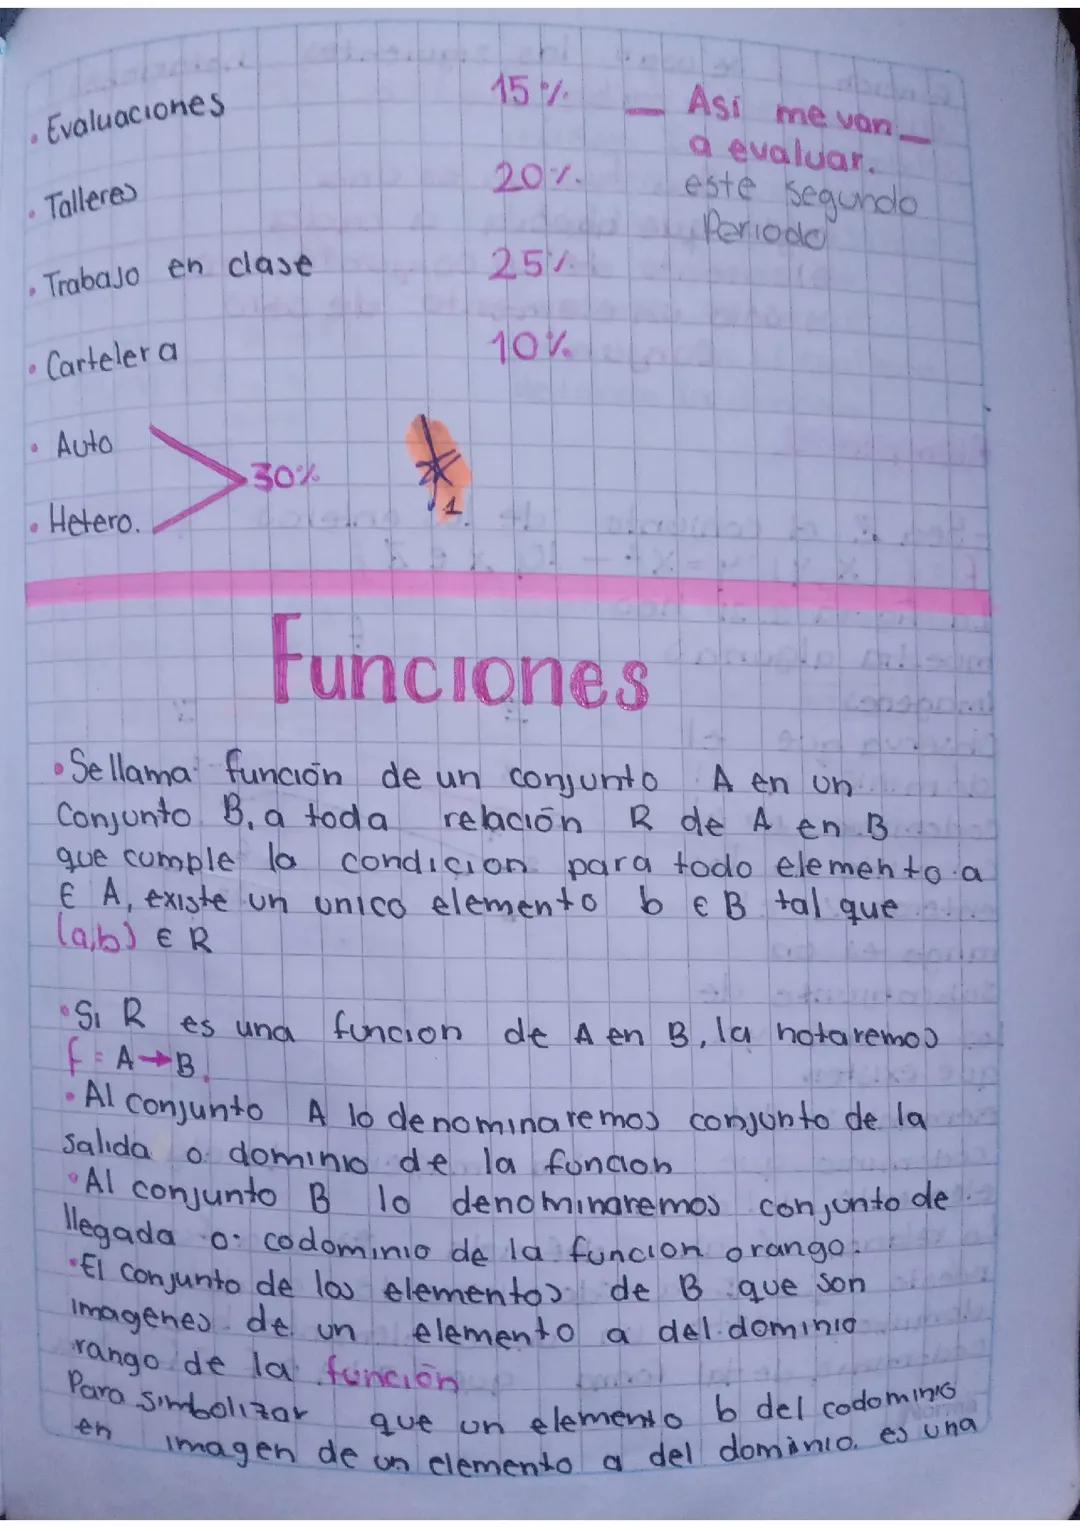 . Evaluaciones 15 %. — Asi me van —
a evaluar.
. Talleres 20 %. este segundo
Periodo
. Trabajo en clase 25 %.
. Cartelera 10 %.
. Auto
30 %
. Hetero.
1
Funciones
• Se llama función de un conjunto A en un
Conjunto B, a toda relación R de A en B
que cumple la condicion para todo elemento a
∈ A, existe un unico elemento b ∈ B tal que
(a,b) ∈ R
• Si R es una funcion de A en B, la notaremos
f = A → B.
• Al conjunto A lo denominaremos conjunto de la
salida o dominio de la funcion
• Al conjunto B lo denominaremos conjunto de
llegada o: codominio de la funcion o rango.
• El conjunto de los elementos de B que son
imagenes de un elemento a del dominio
rango de la función
Para simbolizar que un elemento b del codominio
en imagen de un elemento a del dominio. es una